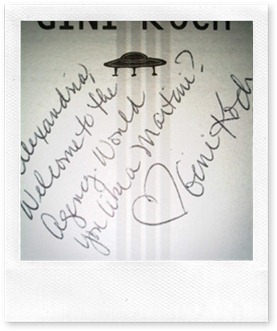 GINI KOCH
Alexandria,
Welcome to the
Agency. Would
you like a Martini?
♡ Gini Koch